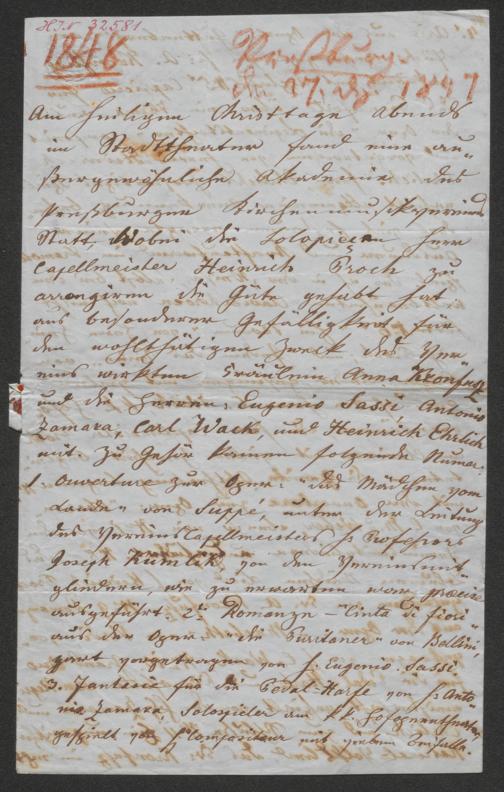 H.I.N. 32581.
1848
Preßburg.
den 27. Dez. 1847
Am heiligen Christtage Abends
im Stadttheater fand eine au„
ßergewöhnliche Akademie des
Preßburger Kirchenmusikvereins
Statt, Wobei die Solopiecen Herr
Capellmeister Heinrich Proch zu
arrangiren die Güte gehabt hat
aus besonderer Gefälligkeit für
den wohlthätigen Zweck des Ver„
eins wirkten Fräulein Anna
und die Herren, Eugenio Sassi Antonio
Zamara, Carl Wack, und Heinrich Ehrlich
mit. Zu Gehör kamen folgende Numer.
1. Ouverture zur Oper: "das Mädchen vom
Lande" von Suppé, unter der Leitung
des Vereinscapellmeisters H Professors
Joseph Kumlik, von den Vereinsmit„
gliedern, wie zu erwarten war, precis
ausgeführt. 2. Romanze – "Cinta di fiori"
aus der Oper: "die Puritaner" von Bellini,
zart vorgetragen von H. Eugenio Sassi.
3. Fantasie für die Pedal-Harfe von H. Anto„
nio Zamara, Solospieler am kk. Hofoperntheater,
gespielt vom H Compositeur mit vielem Beifalle.